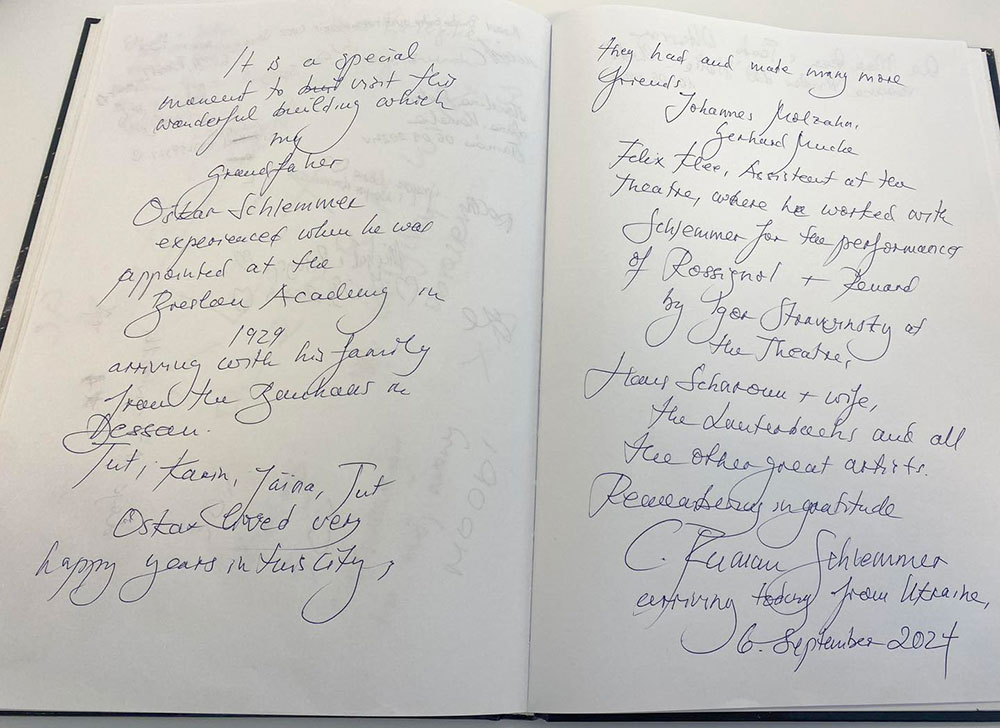 It is a special
moment to visit this
wonderful building which
my
Grandfather
Oskar Schlemmer
experienced when he was
appointed at the
Breslau Academy in
1929
arriving with his family
from the Bauhaus in
Dessau.
Tut, Karin, Jaina, Tut
Oskar lived very
happy years in this City,
they had and made many more
friends
Johannes Molzahn,
Gerhard Mucke
Felix Klee, Assistent at the
Theatre, where he worked with
Schlemmer for the performance
of Rossignol + Renard
by Igor Stravinsky at
the Theatre,
Hans Scharoun + wife,
the Lauterbachs and all
the other great artists.
Remembering in gratitude
C. Raman Schlemmer
arriving today from Ukraine,
6. September 2024